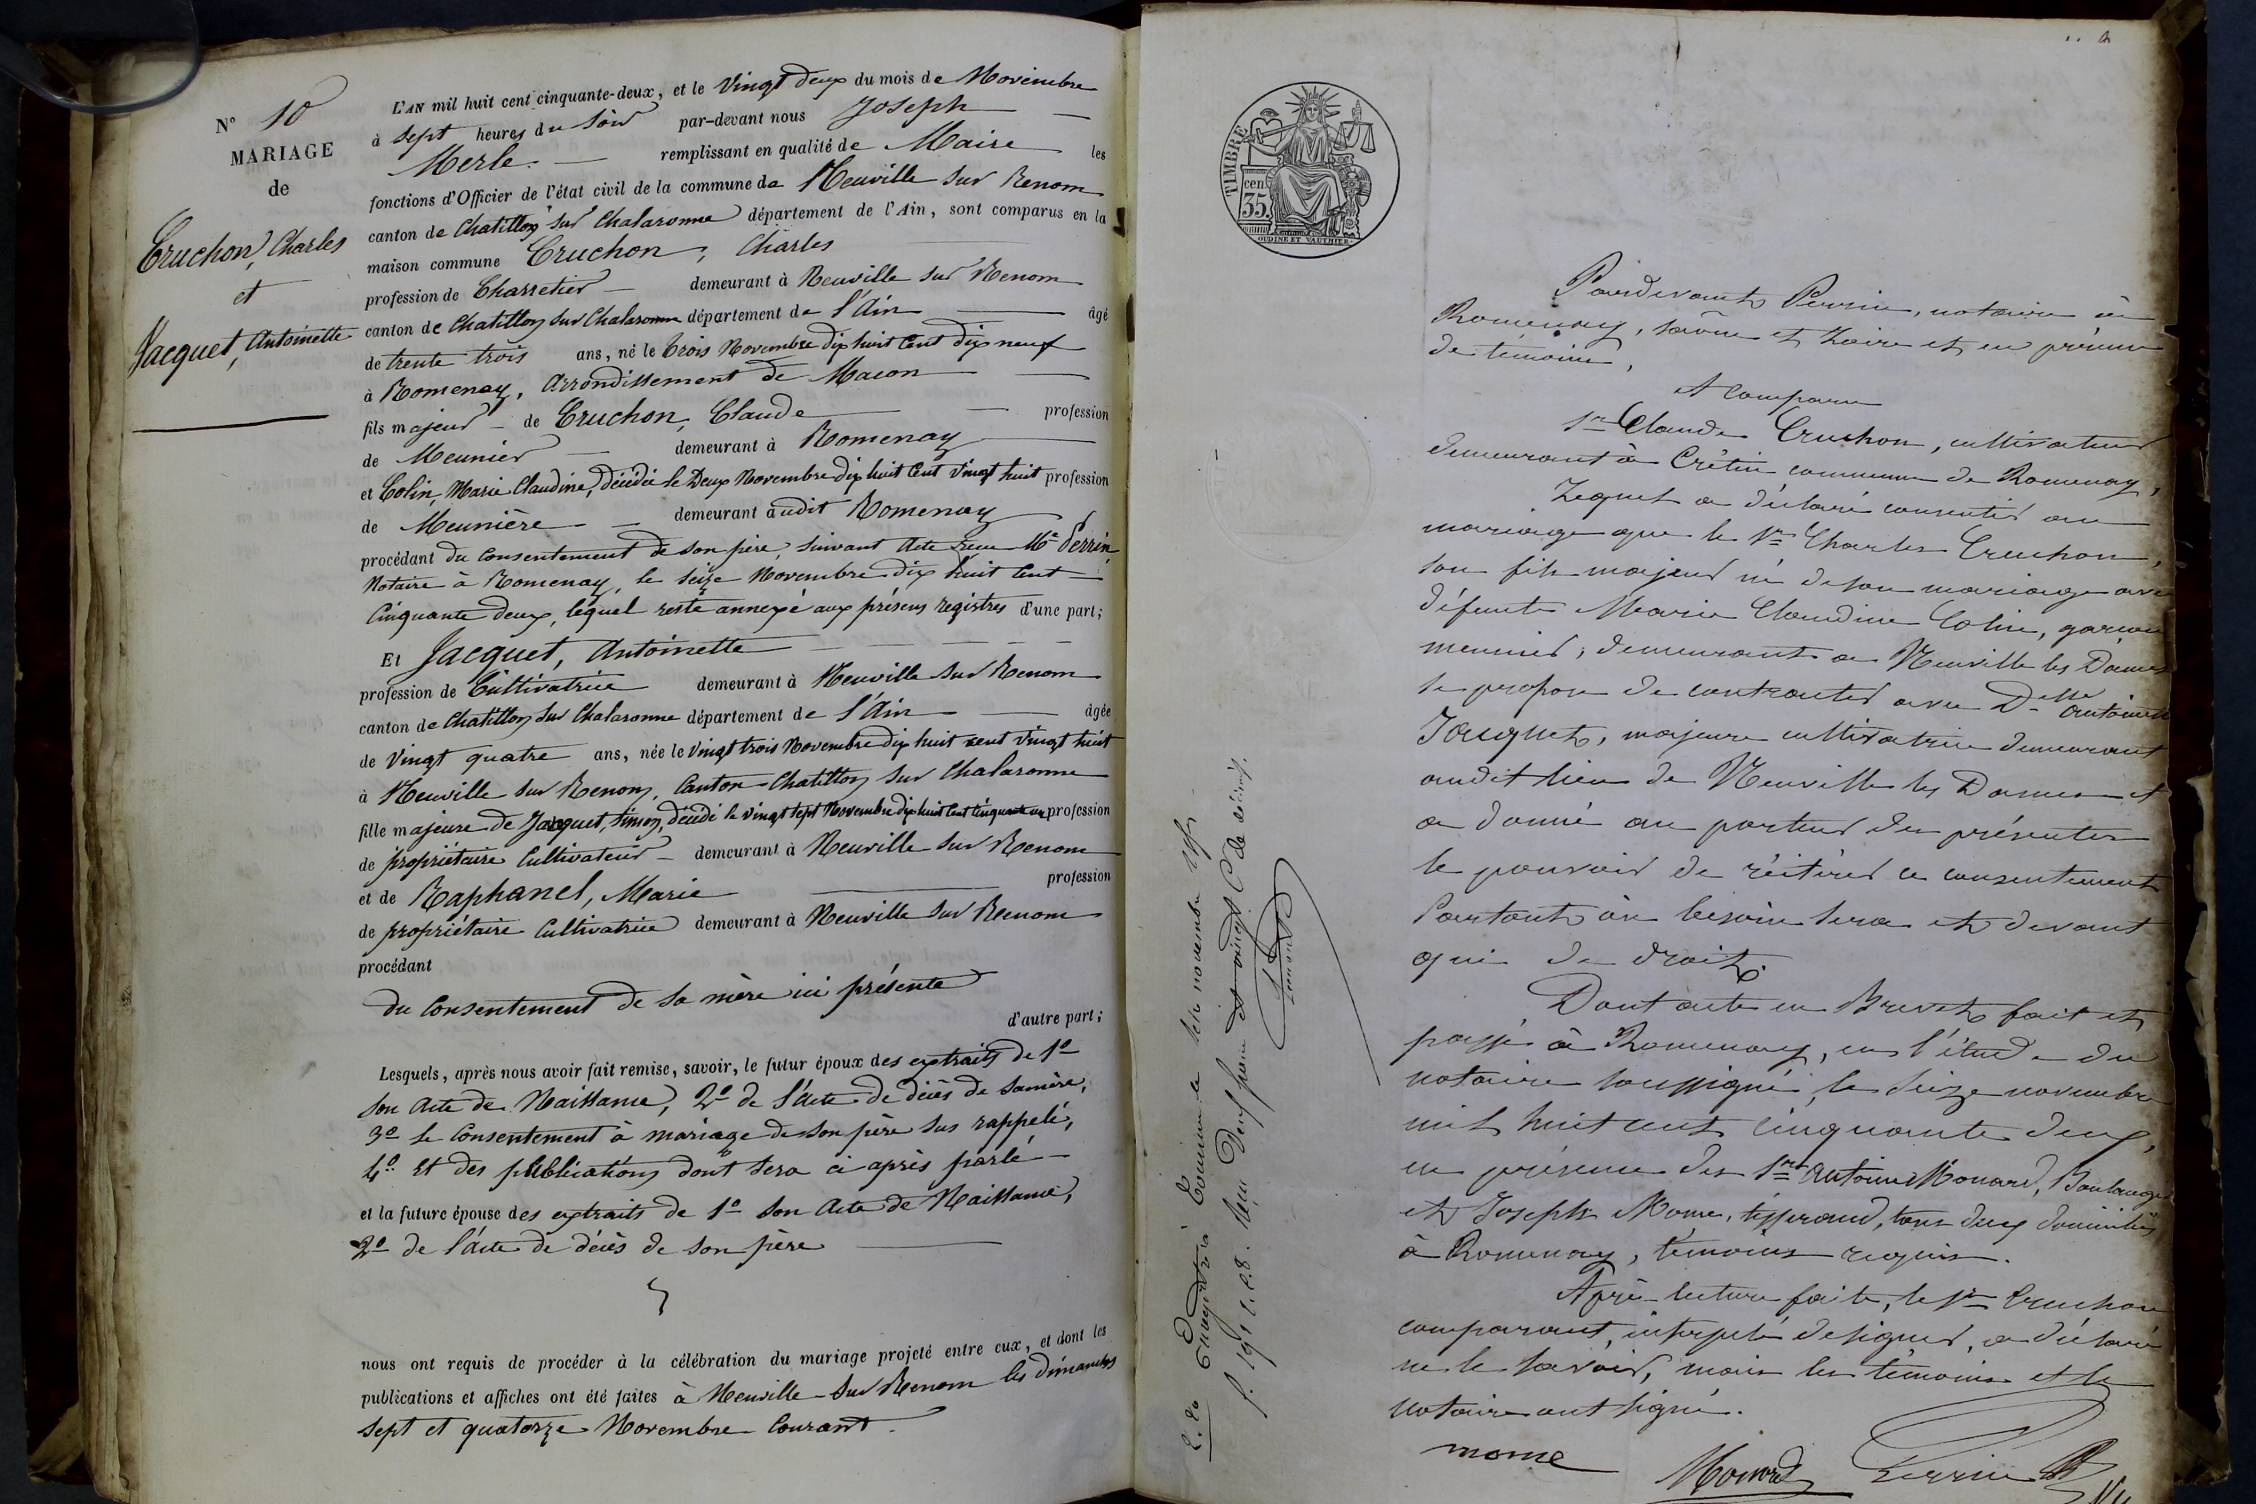 N° 10
MARIAGE
de
Cruchon, Charles
et
Jacquet, Antoinette
L'AN mil huit cent cinquante-deux, et le Vingt deux du mois de Novembre
à Sept heures du Soir par-devant nous Joseph
Merle. remplissant en qualité de Maire les
fonctions d'Officier de l'état civil de la commune de Neuville sur Renom
canton de Chatillon sur Chalaronne département de l'Ain, sont comparus en la
maison commune Cruchon, Charles
profession de Charretier demeurant à Neuville sur Renom
canton de Chatillon sur Chalaronne département de l'Ain âgé
de trente trois ans, né le trois Novembre dix huit Cent dix neuf
à Romenay, arrondissement de Macon
fils majeur de Cruchon, Claude profession
de Meunier demeurant à Romenay
et Colin, Marie Claudine, décédée le Deux Novembre dix huit Cent Vingt huit profession
de Meunière demeurant audit Romenay
procédant du consentement de son père, suivant acte reçu Me Perrin
Notaire à Romenay, le Seize Novembre dix huit Cent
Cinquante deux, lequel reste annexé aux présens registres d'une part;
Et Jacquet, Antoinette
profession de Cultivatrice demeurant à Neuville sur Renom
canton de Chatillon sur Chalaronne département de l'Ain âgée
de Vingt quatre ans, née le Vingt trois Novembre dix huit cent Vingt huit
à Neuville sur Renom, Canton Chatillon sur Chalaronne
fille majeure de Jacquet, Simon, décédé le vingt sept Novembre dix huit Cent Cinquante un profession
de propriétaire Cultivateur demeurant à Neuville sur Renom
et de Raphanel, Marie profession
de propriétaire Cultivatrice demeurant à Neuville sur Renom
procédant
du consentement de sa mère ici présente
d'autre part;
Lesquels, après nous avoir fait remise, savoir, le futur époux des extraits de 1°
son acte de Naissance, 2° de l'acte de décès de sa mère,
3° le Consentement à mariage de son père sus rappelé,
4° Et des publications dont sera ci après parlé
et la future épouse des extraits de 1° son acte de Naissance,
2° de l'acte de décès de son père
nous ont requis de procéder à la célébration du mariage projeté entre eux, et dont les
publications et affiches ont été faites à Neuville sur Renom les dimanches
Sept et quatorze Novembre Courant.
TIMBRE
35 cen
OUDINÉ ET VAUTHIER
Pardevant Perrin, notaire à
Romenay, Saône et Loire et en présence
de témoins,
A comparu
Sr Claude Cruchon, cultivateur
demeurant à Crétin commune de Romenay,
Lequel a déclaré consentir au
mariage que le Sr Charles Cruchon,
son fils majeur né de son mariage avec
défunte Marie Claudine Colin, garçon
meunier, demeurant à Neuville les Dames
se propose de contracter avec Delle Antoinette
Jacquet, majeure cultivatrice demeurant
audit lieu de Neuville les Dames et
a donné au porteur des présentes
le pouvoir de réitérer ce consentement
Partout où besoin sera et devant
qui de droit.
Dont acte en Brevet, fait et
passé à Romenay, en l'étude du
notaire soussigné, le Seize novembre
mil huit cent cinquante deux,
en présence des Srs Antoine Monard, Boulanger
et Joseph Mome, tisserand, tous deux domiciliés
à Romenay, témoins requis.
Après lecture faite, le Sr Cruchon
comparant, interpelé de signer, a déclaré
ne le savoir, mais les témoins et le
notaire ont signé.
mome Monard Perrin
Enregistré à
le seize novembre 1852
f. 191 c. 8. Reçu deux francs et vingt C de décime.